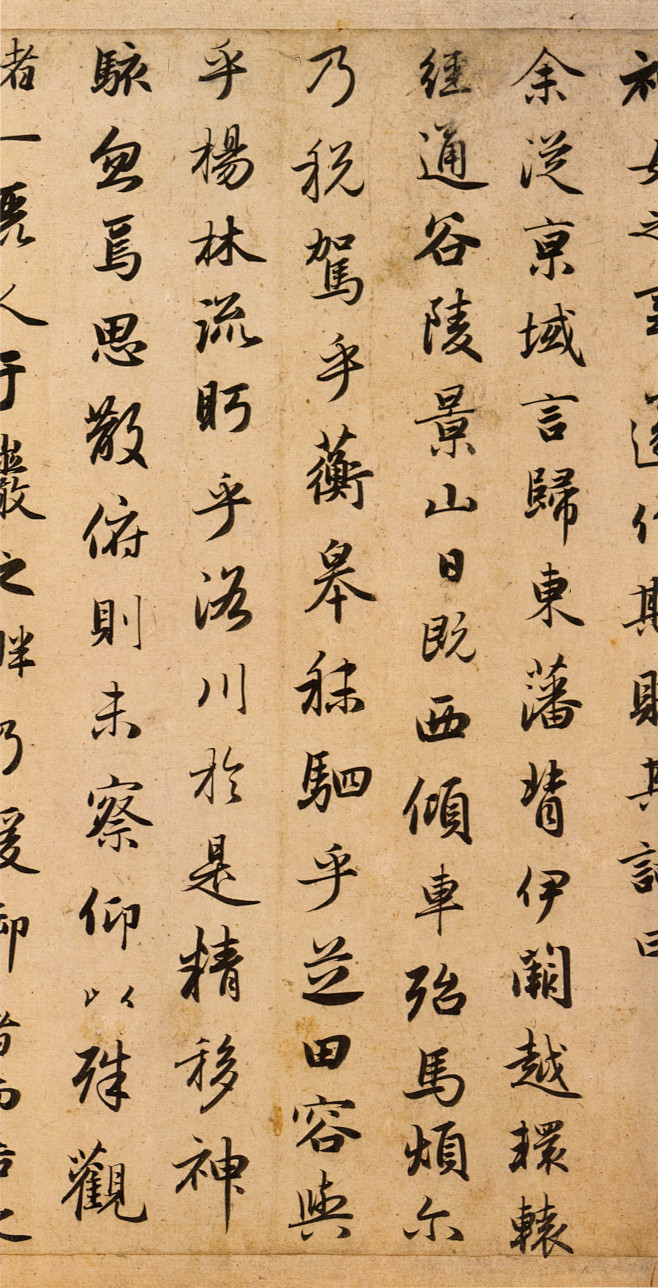 神女之事遂作斯賦其詞曰
余從亰域言歸東藩背伊闕越轘轅
經通谷陵景山日既西傾車殆馬煩尓
乃稅駕乎蘅皋秣駟乎芝田容與
乎楊林流眄乎洛川於是精移神
駭忽焉思散俯則未察仰以殊觀
睹一麗人于巖之畔乃援御者而告之